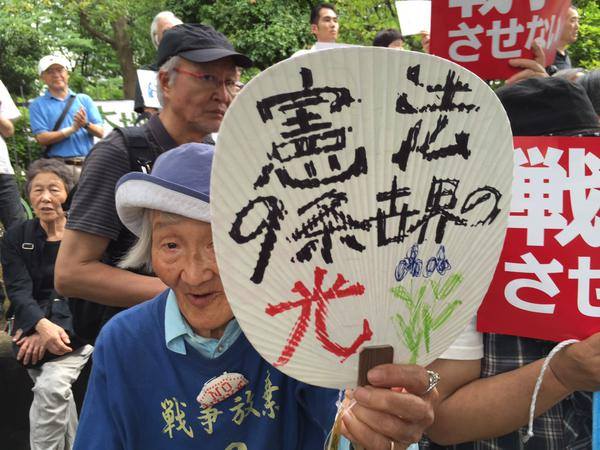 戦争
させない
憲法
9条世界の
光
戦
させ
NO
戦争放棄